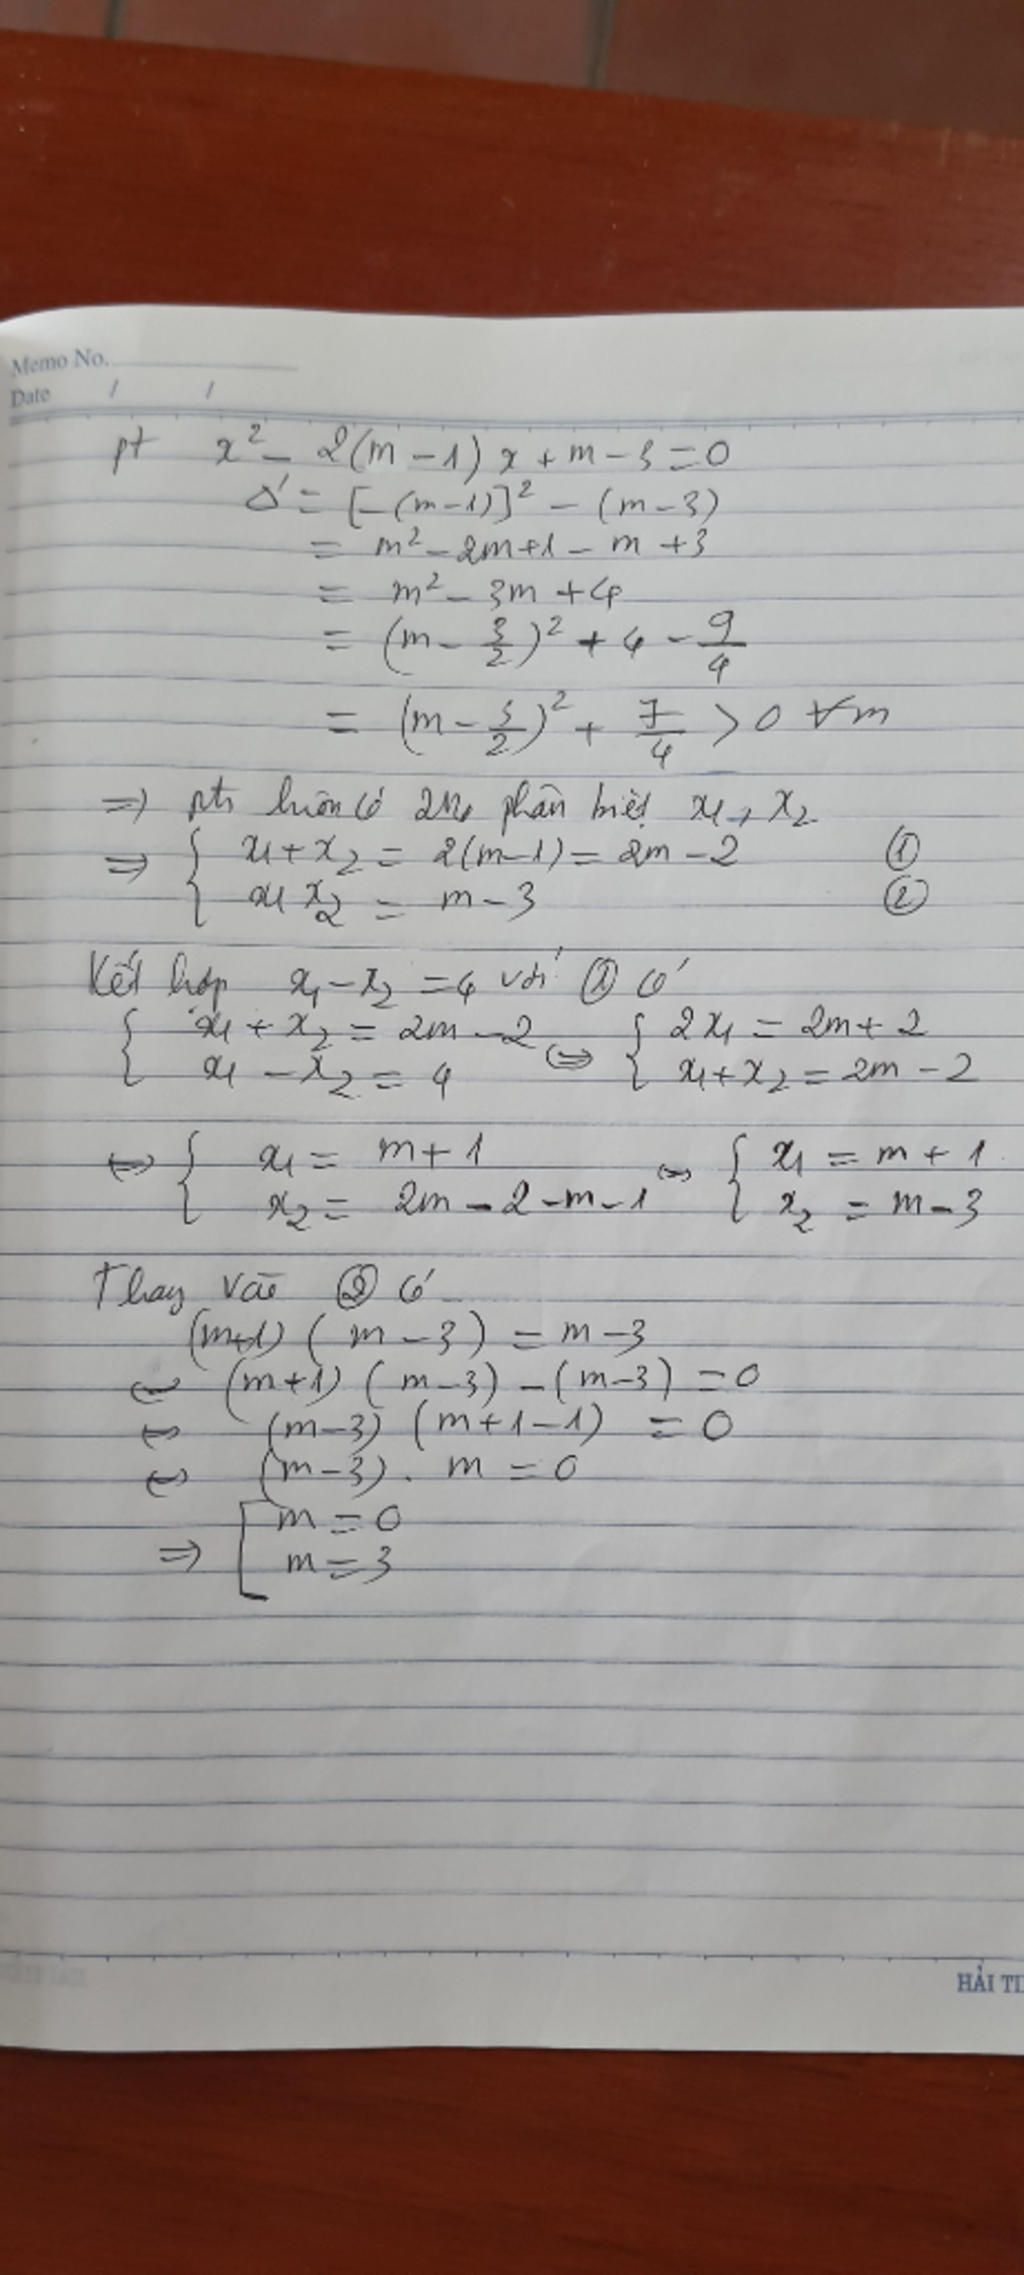 Memo No.
Date / /
pt x² - 2(m-1)x + m-3 = 0
Δ' = [-(m-1)]² - (m-3)
= m² - 2m+1 - m +3
= m² - 3m + 4
= (m - 3/2)² + 4 - 9/4
= (m - 3/2)² + 7/4 > 0 ∀m
=> pt luôn có 2 No phân biệt x₁, x₂
=> { x₁+x₂ = 2(m-1) = 2m-2 ①
x₁x₂ = m-3 ②
Kết hợp x₁-x₂ = 4 với ① có
{ x₁+x₂ = 2m-2 <=> { 2x₁ = 2m+2
x₁-x₂ = 4 x₁+x₂ = 2m-2
<=> { x₁ = m+1 <=> { x₁ = m+1
x₂ = 2m-2-m-1 x₂ = m-3
Thay vào ② có
(m+1)(m-3) = m-3
<=> (m+1)(m-3) - (m-3) = 0
<=> (m-3)(m+1-1) = 0
<=> (m-3).m = 0
=> [ m = 0
m = 3
HẢI TI